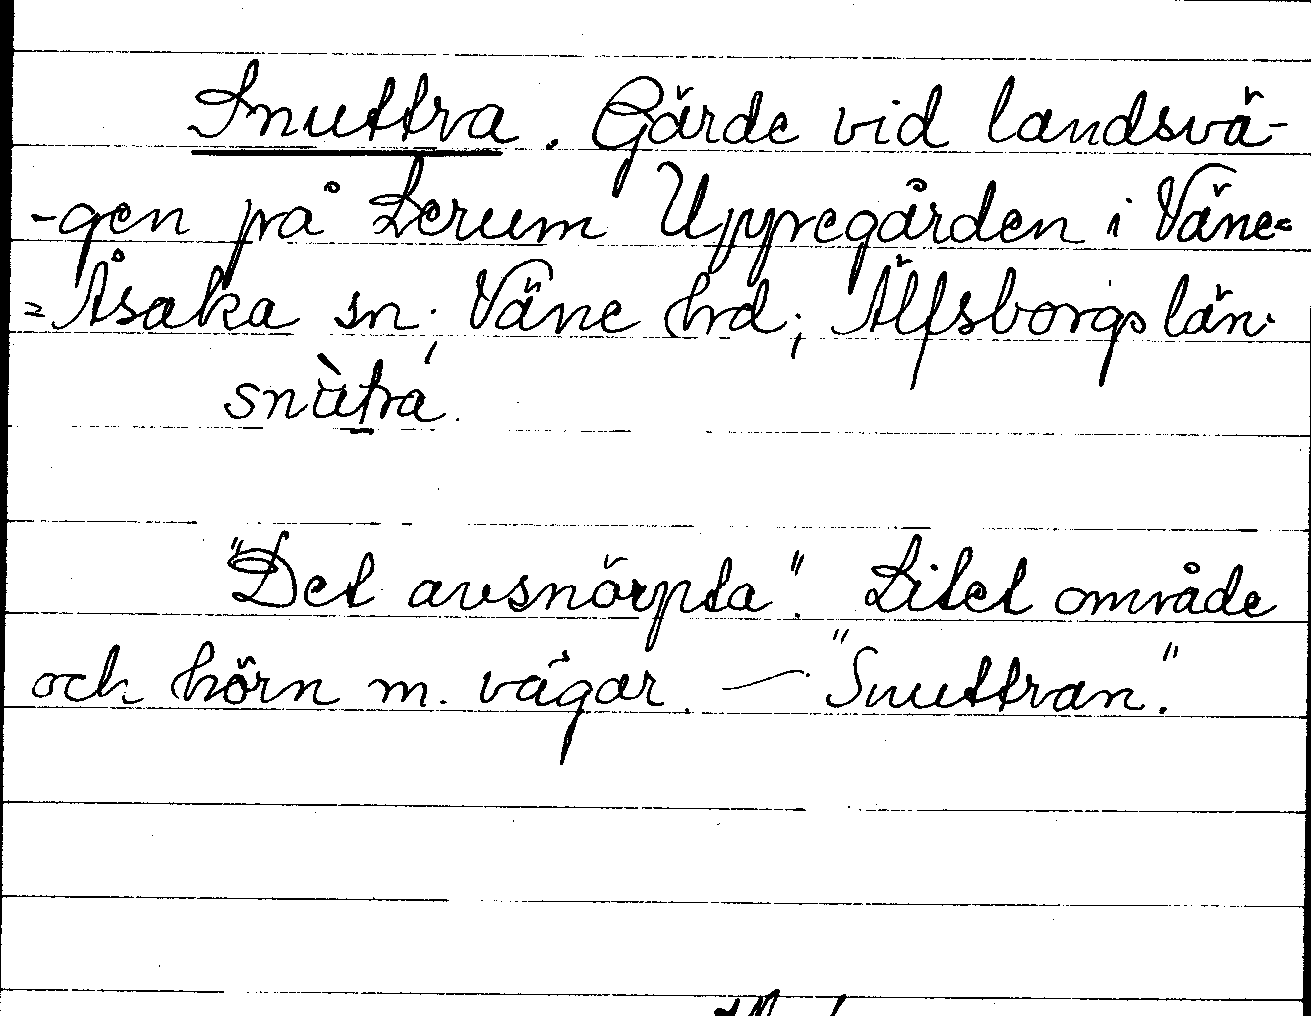 Snuttra. Gärde vid landsvä-
-gen på Lerum Uppregården i Väne=
=Åsaka sn. Väne hrd; Älfsborgs län.
snùtrá.
"Det avsnörpta". Litet område
och hörn m. vägar. — "Snuttran."